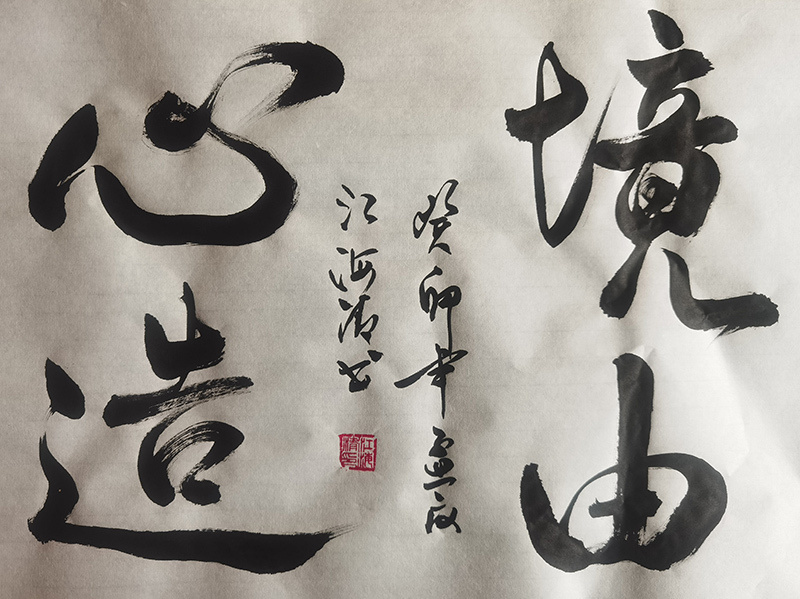 境由
心造
癸卯年孟夏
江海清书